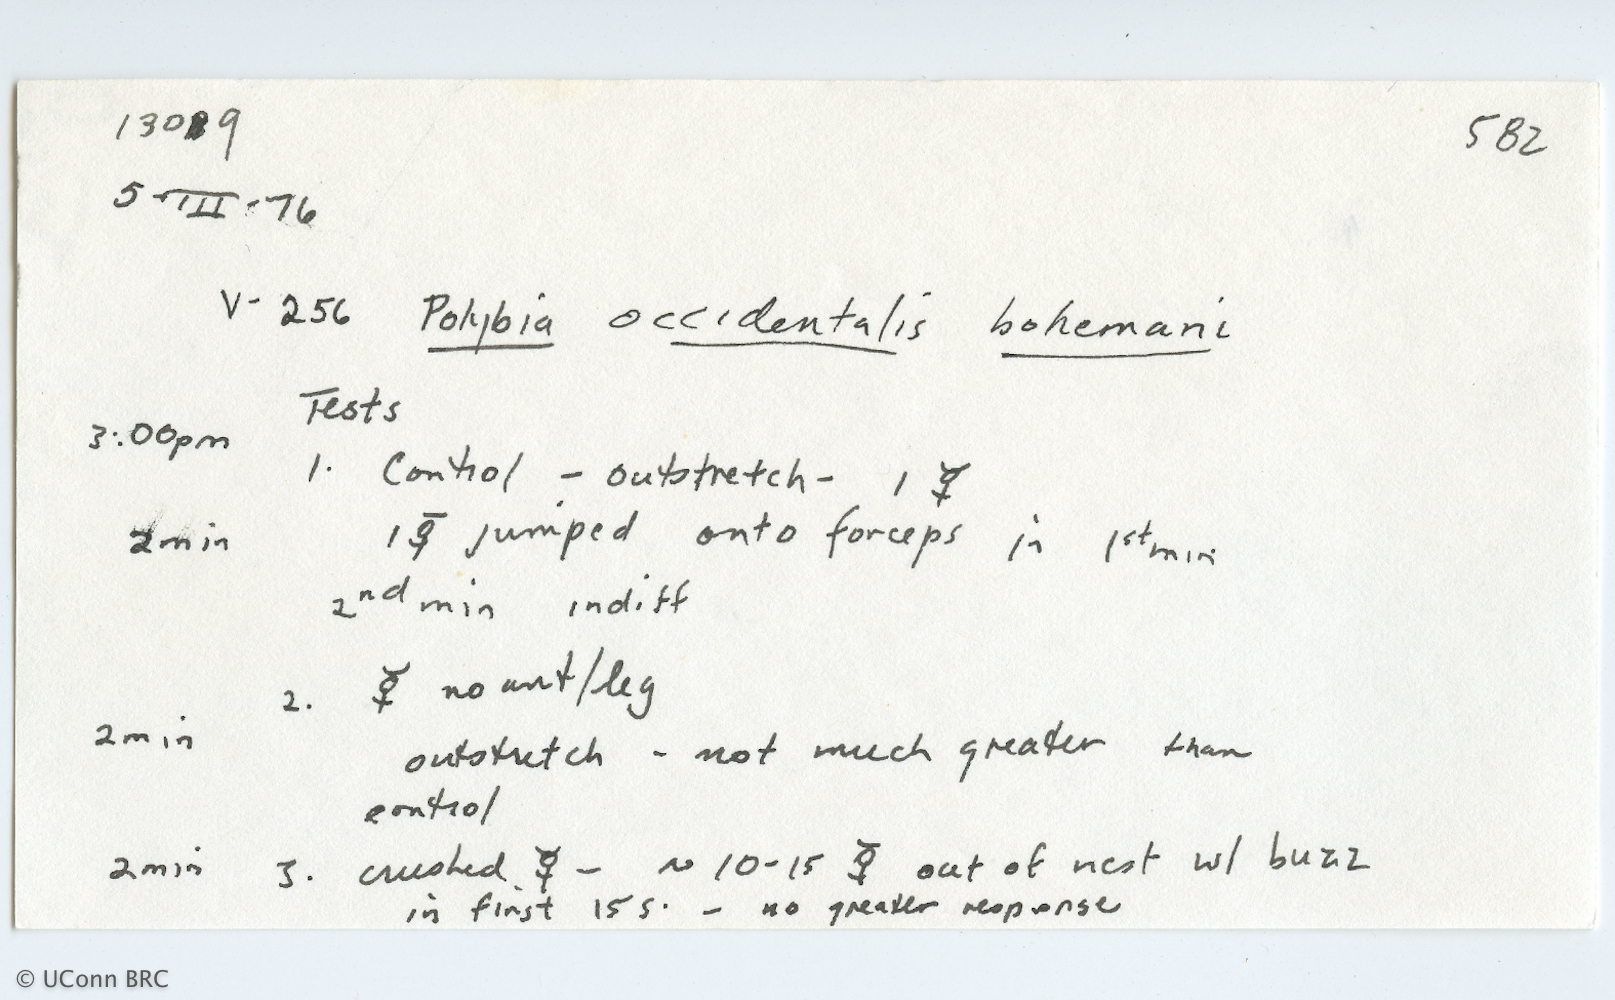 582
5-III-76
V-256 Polybia occidentalis bohemani
Tests
3:00pm
1. Control - outstretch- 1 ☿
2min 1 ☿ jumped onto forceps in 1st min
2nd min indiff
2. ☿ no ant/leg
2min outstretch - not much greater than
control
2min 3. crushed ☿ - ~ 10-15 ☿ out of nest w/ buzz
in first 15 s. - no greater response
© UConn BRC